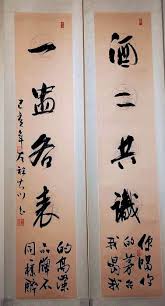 酒二共識
你喝你
的茅台
我喝我
一盡各表
的高粱
品牌不
同樣醉
己亥年